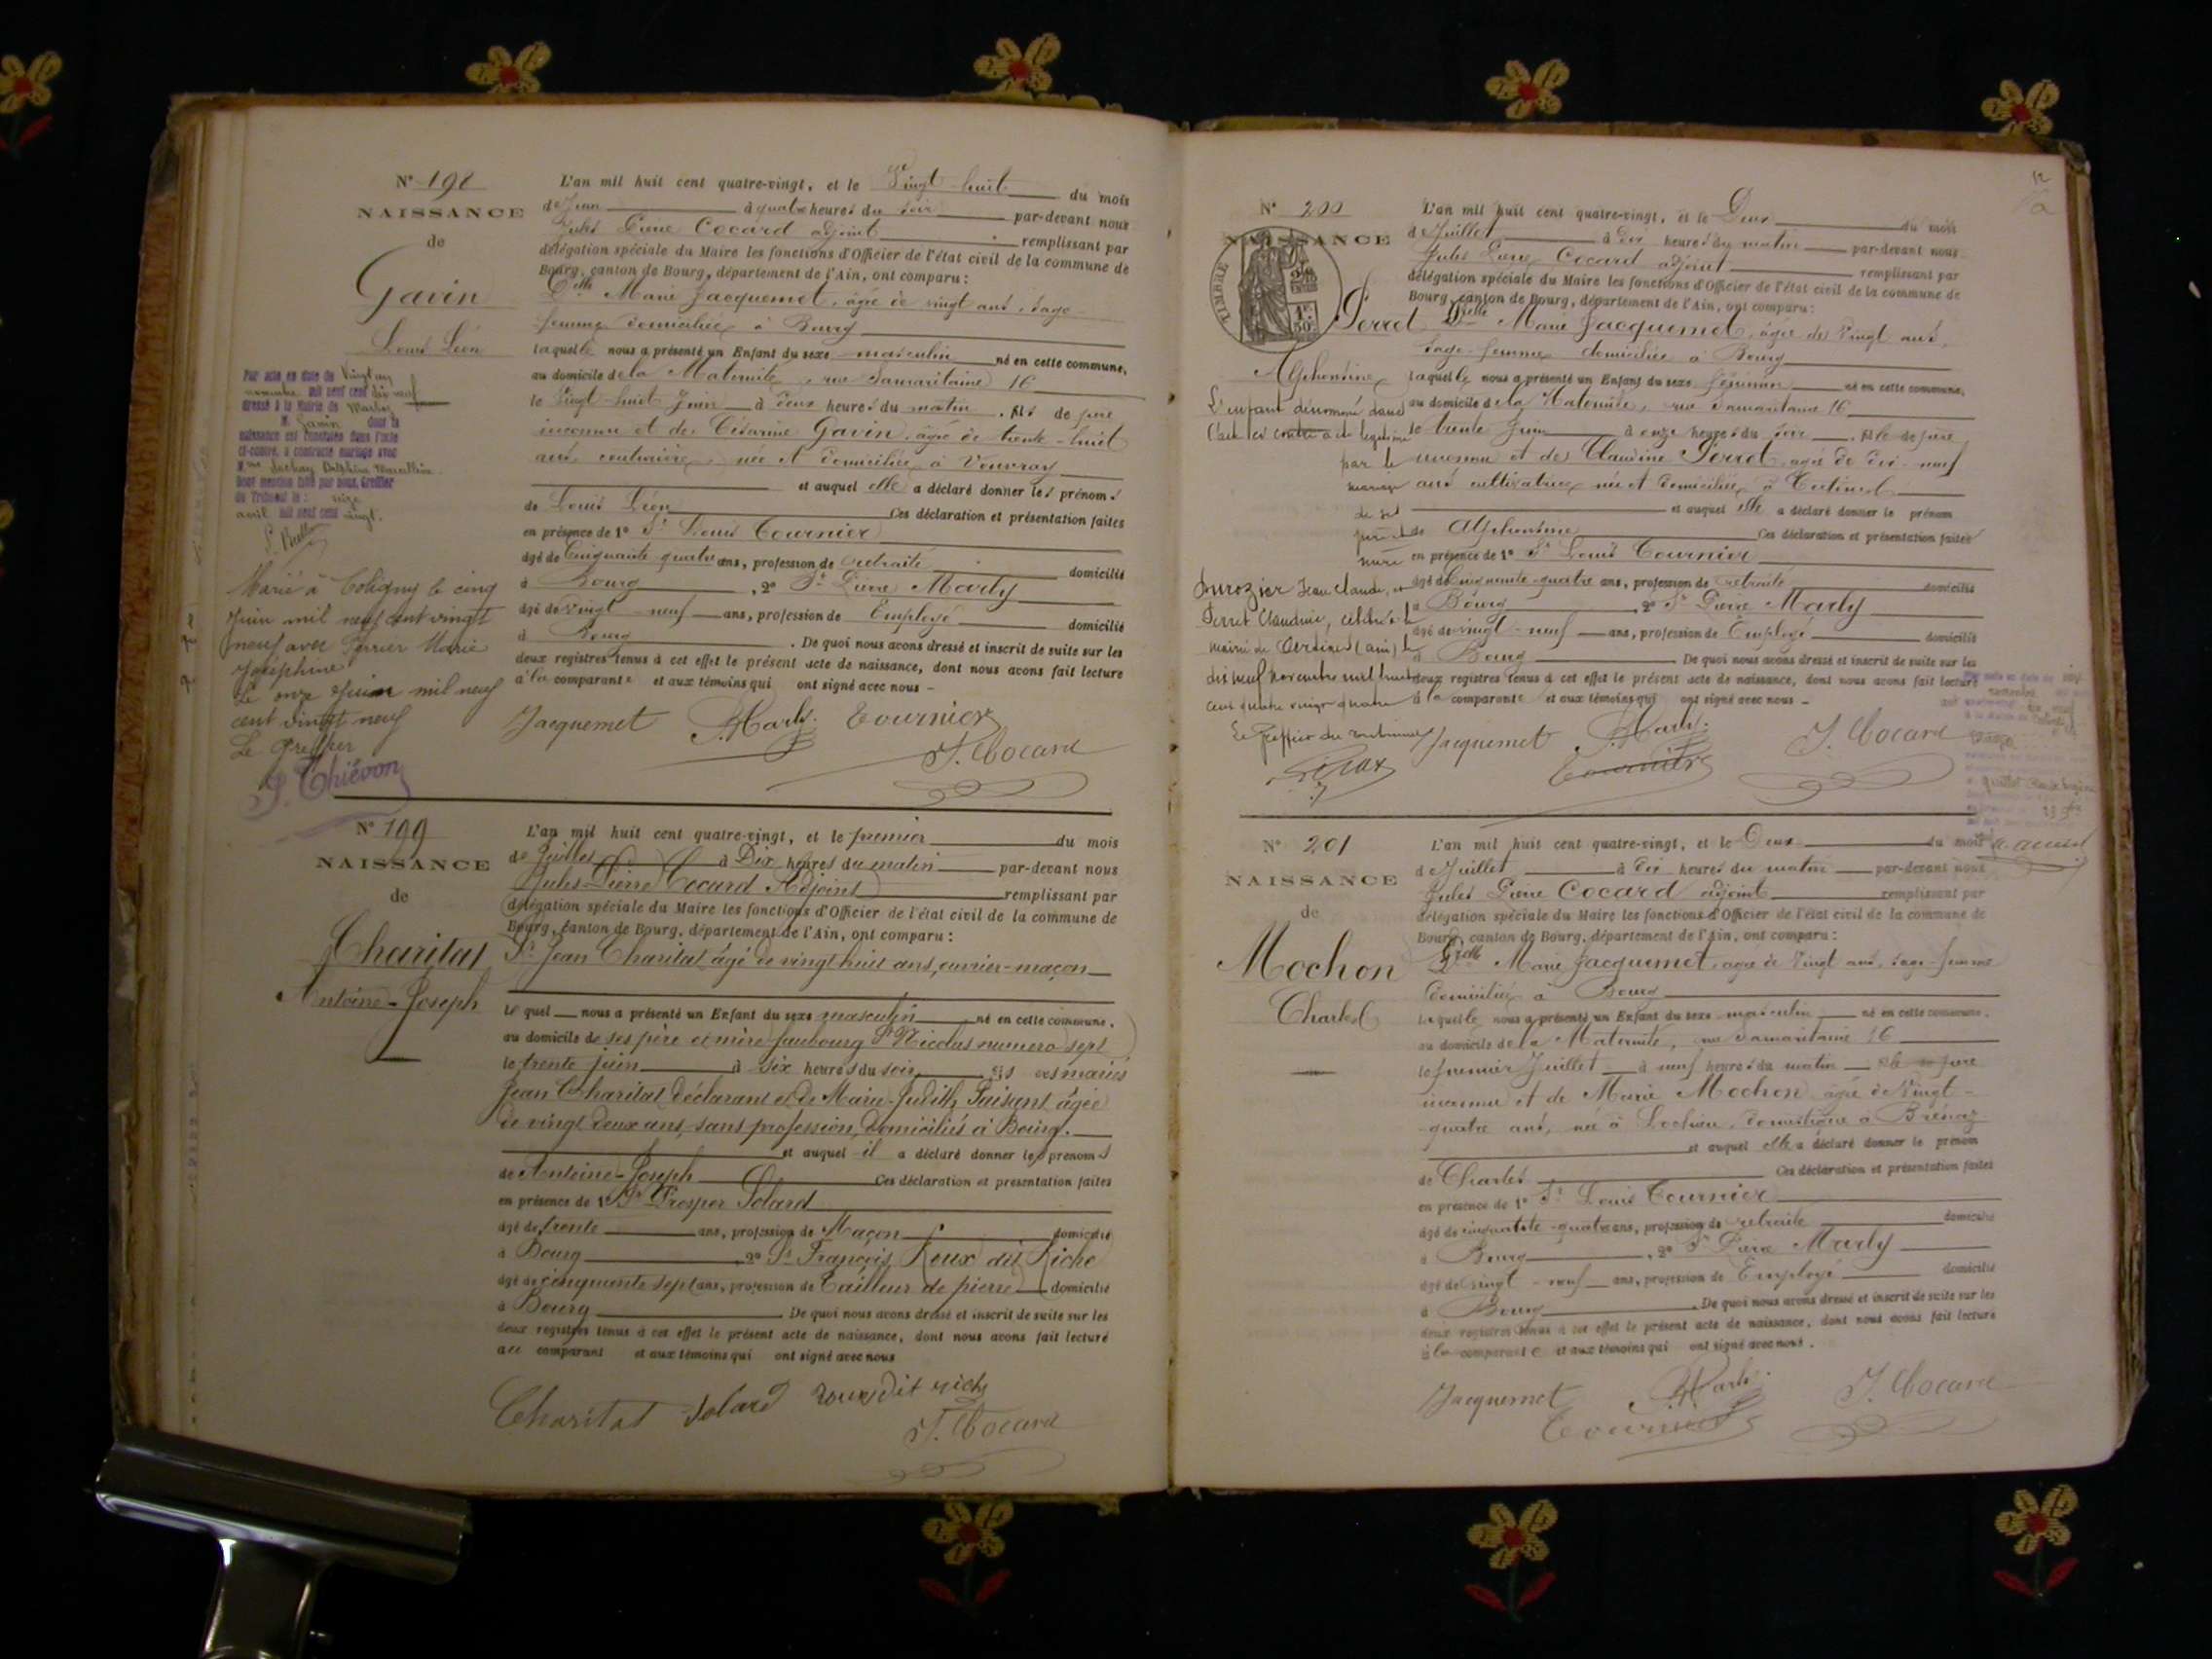 Nº 198
NAISSANCE
de
Gavin
Louis Léon
L'an mil huit cent quatre-vingt, et le Vingt huit du mois
de Juin à quatre heures du soir par-devant nous
Jules Pierre Cocard adjoint remplissant par
délégation spéciale du Maire les fonctions d'Officier de l'état civil de la commune de
Bourg, canton de Bourg, département de l'Ain, ont comparu:
Delle Marie Jacquemet, âgée de vingt ans, sage-
femme domiciliée à Bourg
laquelle nous a présenté un Enfant du sexe masculin né en cette commune,
au domicile de la Maternité, rue Samaritaine 16
le Vingt-huit Juin à deux heures du matin, fils de père
inconnu et de Gavin, âgée de trente-huit
ans couturière, née et domiciliée à
et auquel elle a déclaré donner les prénoms
de Louis Léon Ces déclaration et présentation faites
en présence de 1º Sr Louis Tournier
âgé de Cinquante quatre ans, profession de retraité domicilié
à Bourg, 2º Sr Pierre Marly
âgé de vingt-neuf ans, profession de Employé domicilié
à Bourg. De quoi nous avons dressé et inscrit de suite sur les
deux registres tenus à cet effet le présent acte de naissance, dont nous avons fait lecture
à la comparante et aux témoins qui ont signé avec nous -
Jacquemet Marly Tournier
J. Cocard
Par acte en date du Vingt un
novembre mil neuf cent dix neuf
dressé à la Mairie de
M. Gavin dont la
naissance est constatée dans l'acte
ci-contre, a contracté mariage avec
Mme Delphine Marcelline
Dont mention faite par nous, Greffier
du Tribunal le: seize
avril mil neuf cent vingt.
Marié à Coligny le cinq
Juin mil neuf cent vingt
neuf avec Perrier Marie
Joséphine
Le onze Juin mil neuf
cent vingt neuf
Le Greffier
P. Thiévon
Nº 199
NAISSANCE
de
Charitat
Antoine-Joseph
L'an mil huit cent quatre-vingt, et le premier du mois
de Juillet à Dix heures du matin par-devant nous
Jules-Pierre Cocard Adjoint remplissant par
délégation spéciale du Maire les fonctions d'Officier de l'état civil de la commune de
Bourg, canton de Bourg, département de l'Ain, ont comparu:
Sr Jean Charitat âgé de vingt huit ans, ouvrier-maçon
lequel nous a présenté un Enfant du sexe masculin né en cette commune,
au domicile de ses père et mère faubourg St Nicolas numero sept
le trente juin à six heures du soir, fils des mariés
Jean Charitat Déclarant et de Marie-Judith âgée
de vingt deux ans, sans profession, Domiciliés à Bourg.
et auquel il a déclaré donner les prénoms
de Antoine-Joseph Ces déclaration et présentation faites
en présence de 1º Sr Prosper Solard
âgé de trente ans, profession de Maçon domicilié
à Bourg, 2º Sr François Roux dit Riche
âgé de cinquante sept ans, profession de Tailleur de pierre domicilié
à Bourg De quoi nous avons dressé et inscrit de suite sur les
deux registres tenus à cet effet le présent acte de naissance, dont nous avons fait lecture
au comparant et aux témoins qui ont signé avec nous
Charitat Solard roux dit riche
J. Cocard
Nº 200
NAISSANCE
TIMBRE
Perret
Alphonsine
L'an mil huit cent quatre-vingt, et le Deux du mois
de Juillet à dix heures du matin par-devant nous
Jules Pierre Cocard adjoint remplissant par
délégation spéciale du Maire les fonctions d'Officier de l'état civil de la commune de
Bourg, canton de Bourg, département de l'Ain, ont comparu:
Delle Marie Jacquemet, âgée de vingt ans,
sage-femme domiciliée à Bourg
laquelle nous a présenté un Enfant du sexe féminin né en cette commune,
au domicile de la Maternité, rue Samaritaine 16
le trente Juin à onze heures du soir, fille de père
inconnu et de Claudine Perret, agée de dix-neuf
ans cultivatrice née et domiciliée à
et auquel elle a déclaré donner le prénom
de Alphonsine Ces déclaration et présentation faites
en présence de 1º Sr Louis Tournier
âgé de Cinquante-quatre ans, profession de retraité domicilié
à Bourg, 2º Sr Pierre Marly
âgé de vingt-neuf ans, profession de Employé domicilié
à Bourg De quoi nous avons dressé et inscrit de suite sur les
deux registres tenus à cet effet le présent acte de naissance, dont nous avons fait lecture
à la comparante et aux témoins qui ont signé avec nous -
Jacquemet Marly J. Cocard
Tournier
L'enfant dénommé dans
l'acte ci contre a été légitimé
par le
mariage
de ses
père et
mère
Jean Claude, et
Perret Claudine, célébré à la
mairie de (ain) le
dix neuf Novembre mil huit
cent quatre vingt quatre
Le Greffier du tribunal
Nº 201
NAISSANCE
de
Mochon
Charles
L'an mil huit cent quatre-vingt, et le Deux du mois
de Juillet à dix heures du matin par-devant nous
Jules Pierre Cocard adjoint remplissant par
délégation spéciale du Maire les fonctions d'Officier de l'état civil de la commune de
Bourg, canton de Bourg, département de l'Ain, ont comparu:
Delle Marie Jacquemet, agée de vingt ans, sage-femme
domiciliée à Bourg
laquelle nous a présenté un Enfant du sexe masculin né en cette commune,
au domicile de la Maternité, rue Samaritaine 16
le premier Juillet à neuf heures du matin fils de père
inconnu et de Marie Mochon âgée de vingt-
quatre ans, née à Lochieu, domestique à Brénaz
et auquel elle a déclaré donner le prénom
de Charles Ces déclaration et présentation faites
en présence de 1º Sr Louis Tournier
âgé de cinquante-quatre ans, profession de retraité domicilié
à Bourg, 2º Sr Pierre Marly
âgé de vingt-neuf ans, profession de Employé domicilié
à Bourg. De quoi nous avons dressé et inscrit de suite sur les
deux registres tenus à cet effet le présent acte de naissance, dont nous avons fait lecture
à la comparante et aux témoins qui ont signé avec nous.
Jacquemet Marly J. Cocard
Tournier